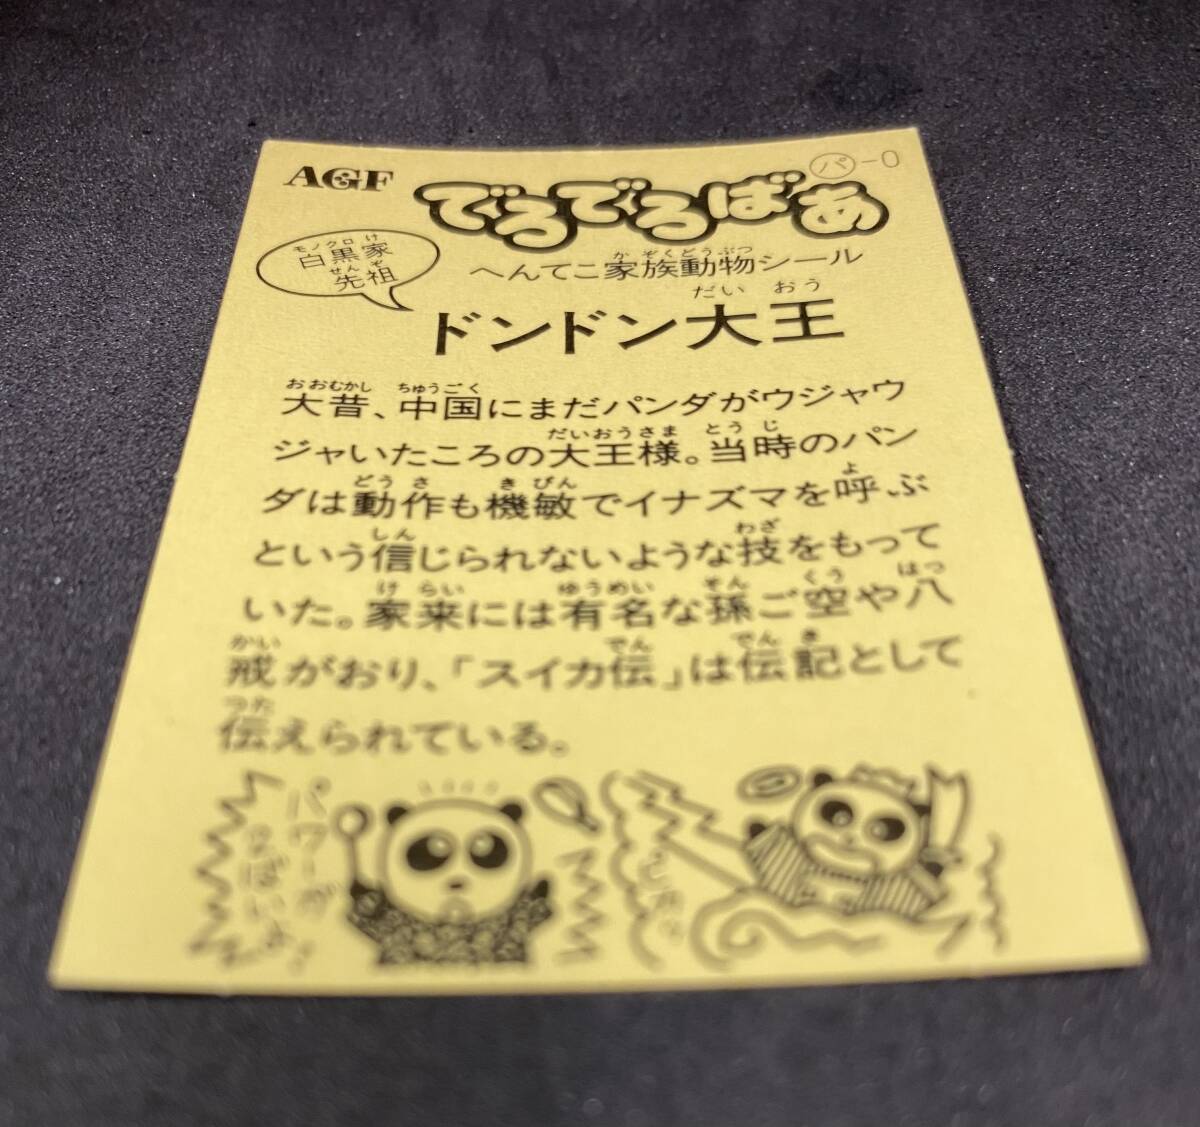 AGF
でるでるばあ
パ-0
白黒家
モノクロ け
先祖
せんぞ
へんてこ家族動物シール
か ぞくどうぶつ
ドンドン大王
だい おう
大昔、中国にまだパンダがウジャウ
おおむかし ちゅうごく
ジャいたころの大王様。当時のパン
だいおうさま とう じ
ダは動作も機敏でイナズマを呼ぶ
どう さ き びん よ
という信じられないような技をもって
しん わざ
いた。家来には有名な孫ご空や八
け らい ゆうめい そん くう はっ
戒がおり、「スイカ伝」は伝記として
かい でん でん き
伝えられている。
つた
パワーが